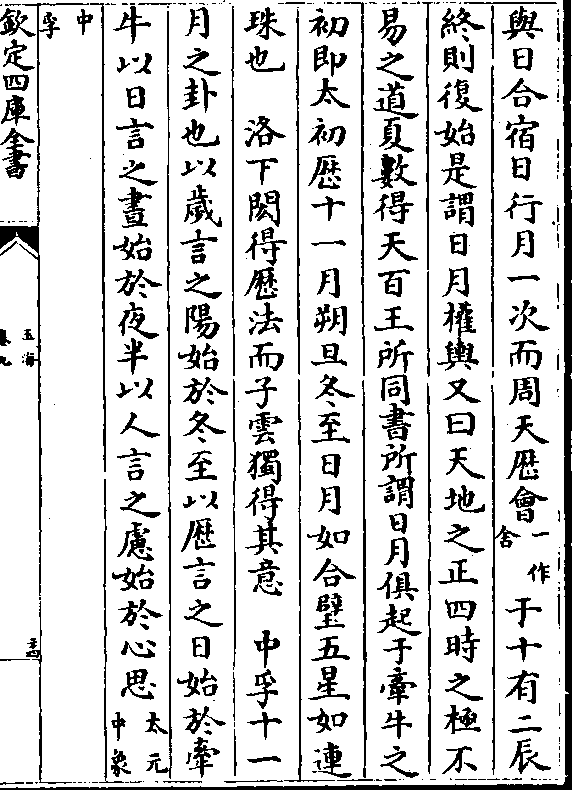 與日合宿日行月一次而周天歴會一作舍于十有二辰
終則復始是謂日月權輿又曰天地之正四時之極不
易之道夏數得天百王所同書所謂日月俱起于牽牛之
初即太初歴十一月朔旦冬至日月如合璧五星如連
珠也　洛下閎得歴法而子雲獨得其意　中孚十一
月之卦也以歲言之陽始於冬至以歴言之日始於牽
牛以日言之晝始於夜半以人言之慮始於心思太元中象
中孚
欽定四庫全書
玉海
卷九